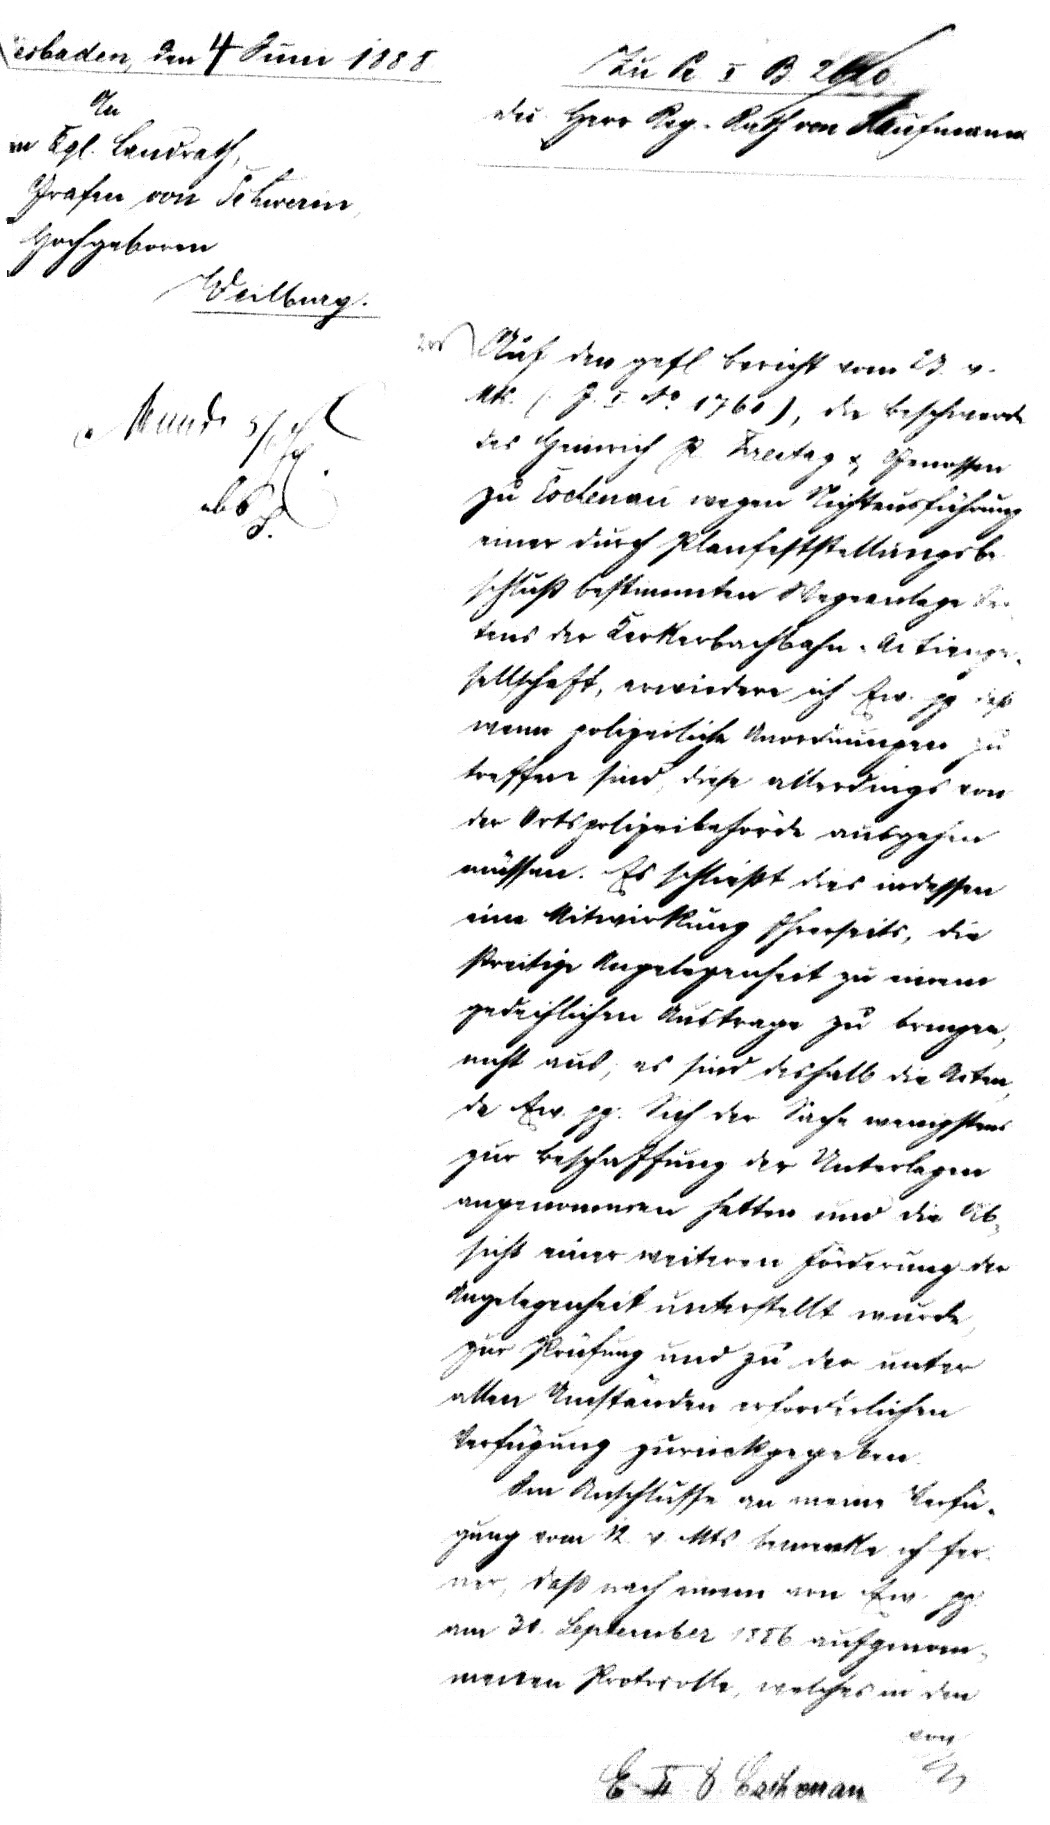 iesbaden, den 4 Juni 1888
Zu Pr. I B. 2620.
An
n Kgl. Landrath,
Grafen von Schwerin,
Hochgeboren
Weilburg.
Herr Reg. Rath von Kaufmann
Auf den gefl Bericht vom 23. v.
Mts. (J. I. No 1760), die Beschwerde
des Heinrich P. Freitag & Genossen
zu Eschenau wegen Nichtausführung
einer durch Planfeststellungsbe
schluß bestimmten Wegeanlage Sei
tens der Kerkerbachbahn-Actienge-
sellschaft, erwiedere ich Ew. pp daß
wenn polizeiliche Anordnungen zu
treffen sind, diese allerdings von
der Ortspolizeibehörde ausgehen
müssen. Es schließt dies indessen
eine Mitwirkung Ihrerseits, die
streitige Angelegenheit zu einem
gedeihlichen Austrage zu bringen,
nicht aus; es sind deshalb die Acten,
da Ew. pp. Sich der Sache wenigstens
zur Beschaffung der Unterlagen
angenommen hatten und die Ab-
sicht einer weiteren Förderung der
Angelegenheit unterstellt wurde,
zur Prüfung und zu der unter
allen Umständen erforderlichen
Verfügung zurückgegeben.
Im Anschlusse an meine Verfü-
gung vom 12. v. Mts bemerke ich fer-
ner, daß nach einem von Ew. pp.
am 30. September 1886 aufgenom-
menen Protocolle, welches in den
von
E II 8 Eschenau